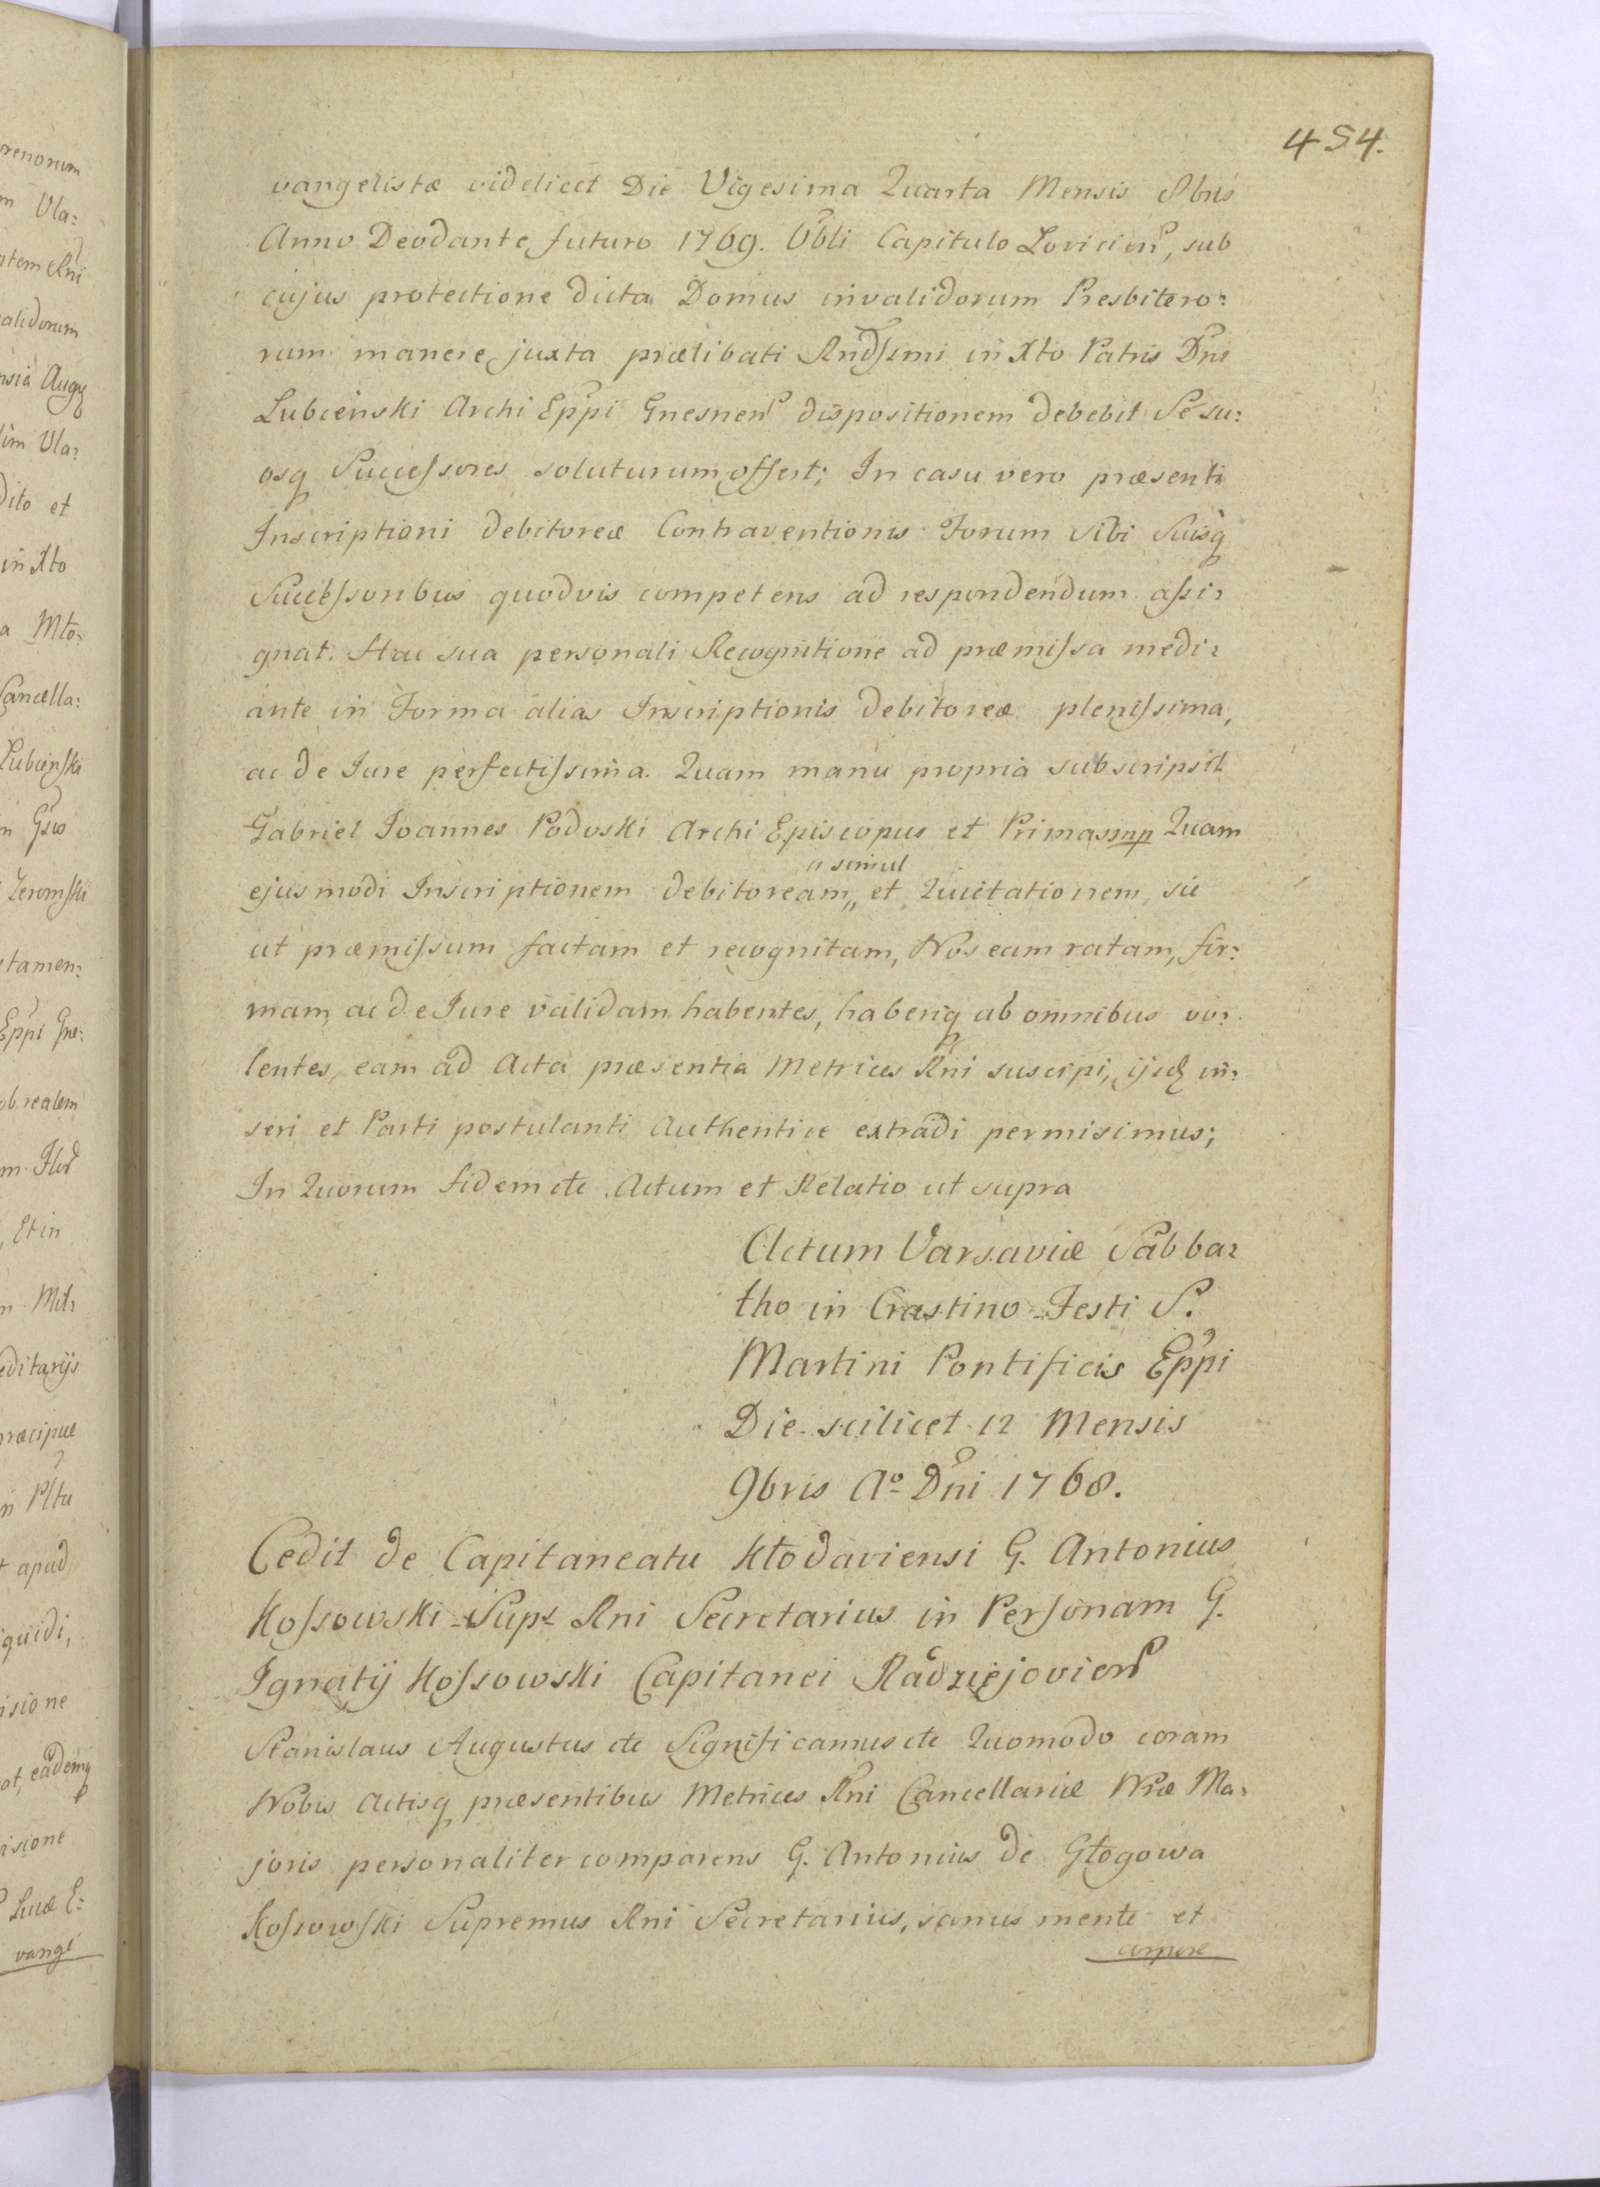 454.
vangelistæ videlicet Die Vigesima Quarta Mensis 8bris
Anno Deodante futuro 1769. Vbli Capitulo Loviciens, sub
cujus protectione dicta Domus invalidorum Presbitero:
rum manere, juxta prælibati Rndssimi in Xto Patris Dni
Lubieński Archi Eppi Gnesnens dispositionem debebit Se su:
osq Successores soluturum offert; In casu vero præsenti
Inscriptioni debitoreæ Contraventionis Forum Sibi Suisq
Successoribus quodvis competens ad respondendum assi:
gnat. Hac sua personali Recognitione ad præmissa medi:
ante in Forma alias Inscriptionis debitoreæ plenissima,
ac de Jure perfectissima. Quam manu propria subscripsit
Gabriel Joannes Podoski Archi Episcopus et Primas mp Quam
" simul
ejusmodi Inscriptionem debitoream,, et Quietationem, sic
ut præmissum factam et recognitam, Nos eam ratam, fir:
mam, ac de Jure validam habentes, haberiq ab omnibus vo:
lentes, eam ad Acta præsentia Metrices Rni suscipi, ijsq in:
seri et Parti postulanti Authentice extradi permisimus;
In Quorum fidem etc Actum et Relatio ut supra
Actum Varsaviæ Sabba:
tho in Crastino Festi S.
Martini Pontificis Eppi
Die scilicet 12 Mensis
9bris Ao Dni 1768.
Cedit de Capitaneatu Kłodaviensi G. Antonius
Kossowski Sups Rni Secretarius in Personam G.
Ignatij Kossowski Capitanei Radziejoviens
Stanislaus Augustus etc Significamus etc Quomodo coram
Nobis Actisq præsentibus Metrices Rni Cancellariæ Nræ Ma:
joris personaliter comparens G. Antonius de Głogowa
Kossowski Supremus Rni Secretarius, sanus mente et
corpore